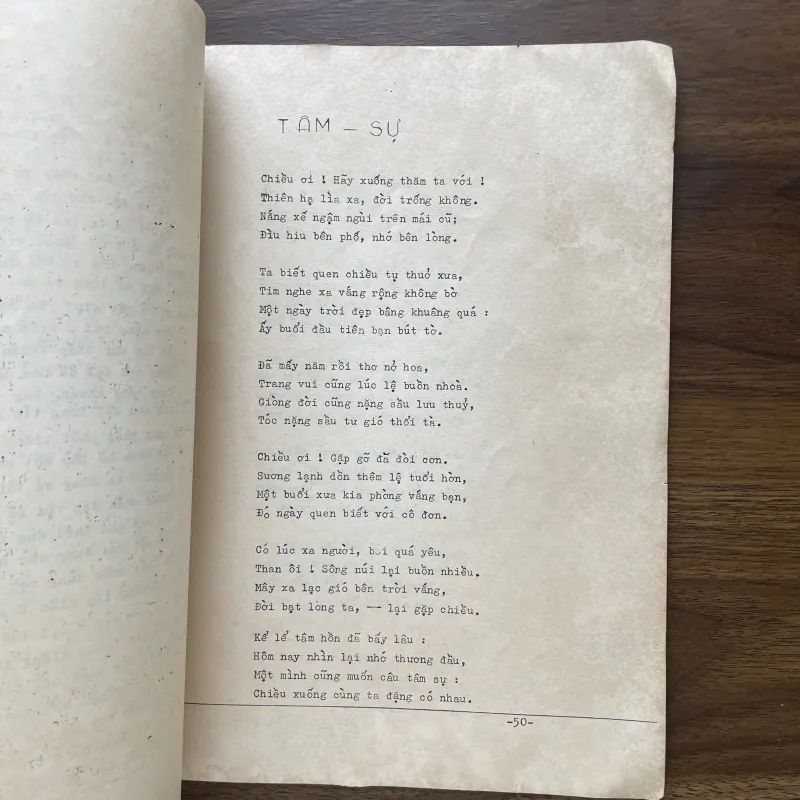 TÂM – SỰ
Chiều ơi ! Hãy xuống thăm ta với !
Thiên hạ lìa xa, đời trống không.
Nắng xế ngậm ngùi trên mái cũ;
Đìu hiu bên phố, nhớ bên lòng.
Ta biết quen chiều tự thuở xưa,
Tim nghe xa vắng rộng không bờ
Một ngày trời đẹp bâng khuâng quá :
Ấy buổi đầu tiên bạn bút tờ.
Đã mấy năm rồi thơ nở hoa,
Trang vui cũng lúc lệ buồn nhoà.
Giòng đời cũng nặng sầu lưu thuỷ,
Tóc nặng sầu tư gió thổi tà.
Chiều ơi ! Gặp gỡ đã đòi cơn.
Sương lạnh dồn thêm lệ tuổi hờn,
Một buổi xưa kia phòng vắng bạn,
Đó ngày quen biết với cô đơn.
Có lúc xa người, bởi quá yêu,
Than ôi ! Sông núi lại buồn nhiều.
Mây xa lạc gió bên trời vắng,
Đời bạt lòng ta, — lại gặp chiều.
Kể lể tâm hồn đã bấy lâu :
Hôm nay nhìn lại nhớ thương đầu,
Một mình cũng muốn câu tâm sự :
Chiều xuống cùng ta đặng có nhau.
-50-